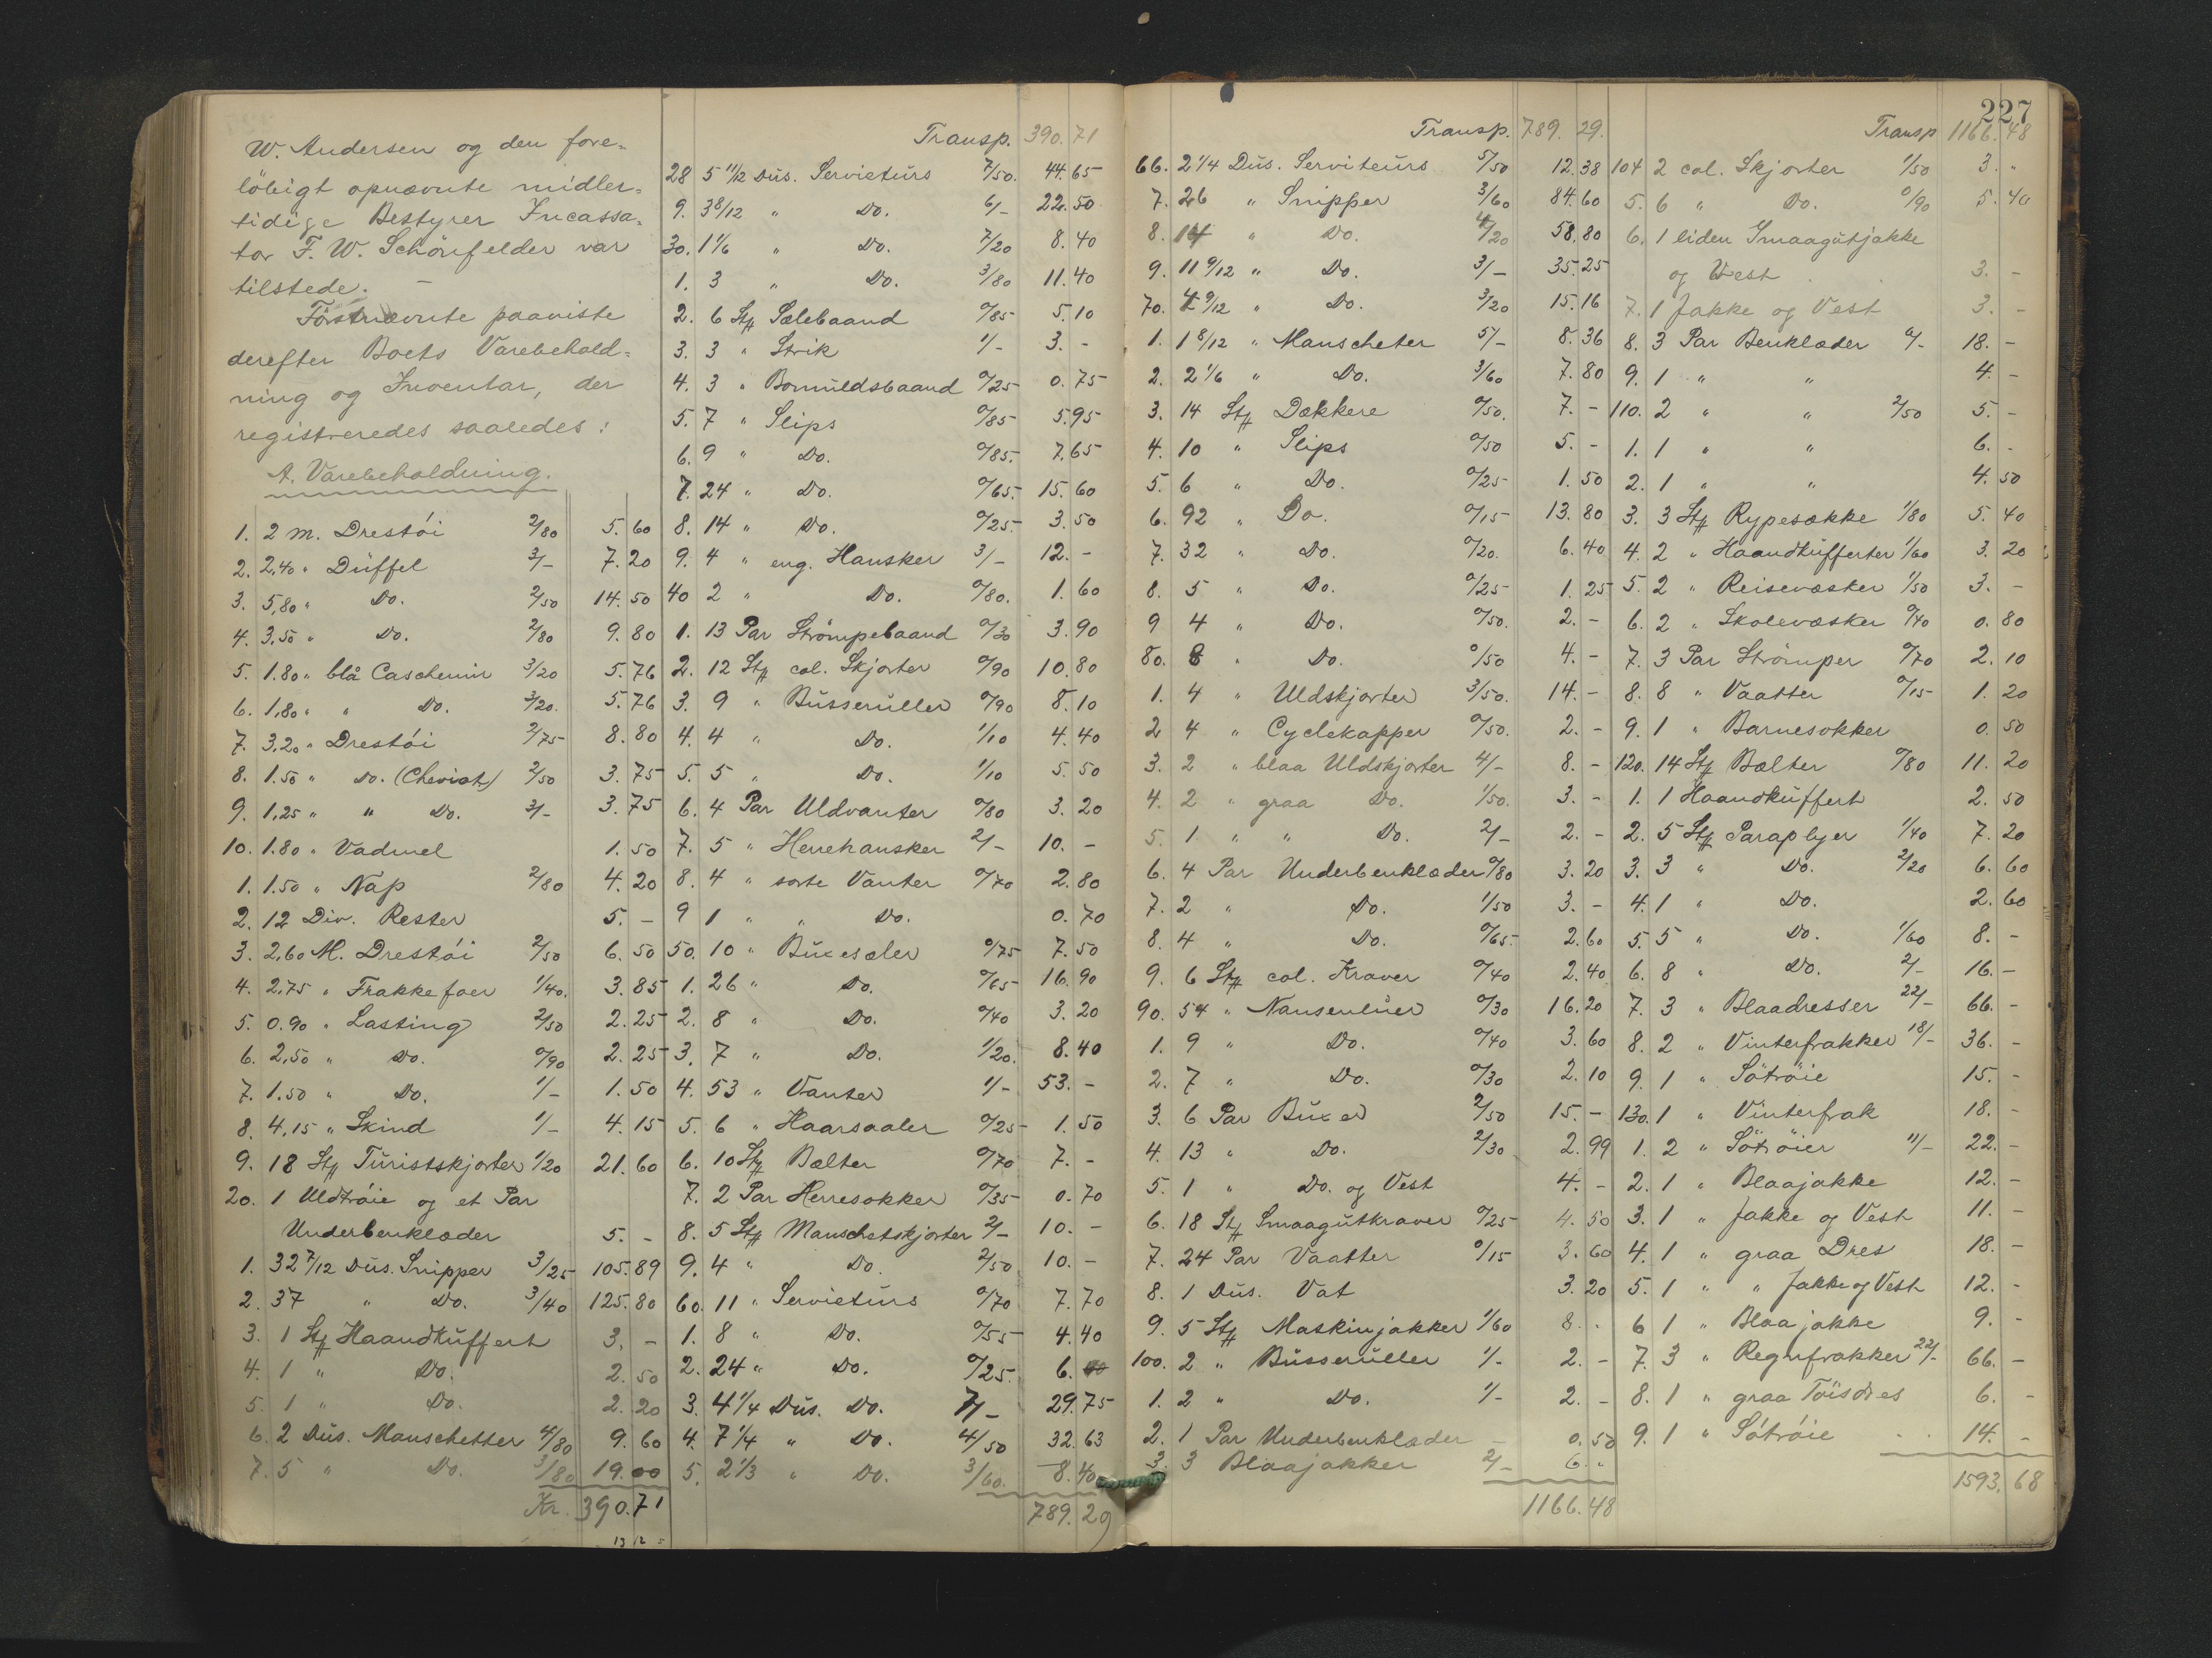 W. Andersen og den fore=
löbigt opnævnte midler=
tidige Bestyrer Incassa=
tor F. W. Schönfelder var
tilstede. –
Föstnævnte paaviste
derefter Boets Varebehold=
ning og Inventar, der
registreredes saaledes:
A. Varebeholdning.
1. 2 m. Drestöi 2/80 5.60
2. 2,40 " Düffel 3/- 7.20
3. 5,80 " Do. 2/50 14.50
4. 3,50 " Do. 2/80 9.80
5. 1.80 " blå Caschemir 3/20 5.76
6. 1,80 " " Do. 3/20. 5.76
7. 3,20 " Drestöi 2/75 8.80
8. 1.50 " Do. (Cheviot) 2/50 3.75
9. 1,25 " " Do. 3/- 3.75
10. 1.80 " Vadmel 1.50
1. 1.50 " Nap 2/80 4.20
2. 12 Div. Rester 5. –
3. 2,60 M. Drestöi 2/50 6.50
4. 2,75 " Frakkefoer 1/40. 3.85
5. 0.90 " Lasting 2/50 2.25
6. 2,50 " Do. 0/90 2.25
7. 1.50 " Do. 1/- 1.50
8. 4,15 " Skind 1/- 4.15
9. 18 Stk Türistskjorter 1/20 21.60
20. 1 Uldtröie og et Par
Underbenklæder 5. –
1. 32 7/12 Düs. Snipper 3/25 105.89
2. 37 " Do. 3/40 125.80
3. 1 Stk Haandküffert 3. –
4. 1 " Do. 2.50
5. 1 " Do. 2.20
6. 2 Düs. Manschetter 4/80 9.60
7. 5 " Do. 3/80 19.00
Kr. 390.71
13 12 5
Transp. 390.71
28 5 11/12 Düs. Servietürs 7/50. 44.65
9. 3 8/12 " Do. 6/- 22.50
30. 1 1/6 " Do. 7/20 8.40
1. 3 " Do. 3/80 11.40
2. 6 Stk Sælebaand 0/85 5.10
3. 3 " Strik 1/- 3. -
4. 3 " Bomuldsbaand 0/25 0.75
5. 7 " Slips 0/85 5.95
6. 9 " Do. 0/85. 7.65
7. 24 " Do. 0/65. 15.60
8. 14 " Do. 0/25. 3.50
9. 4 " eng. Hansker 3/- 12. -
40 2 " Do. 0/80. 1.60
1. 13 Par Strömpebaand 0/30 3.90
2. 12 Stk col. Skjorter 0/90 10.80
3. 9 " Büsserüller 0/90 8.10
4. 4 " Do. 1/10 4.40
5. 5 " Do. 1/10 5.50
6. 4 Par Uldvanter 0/80 3.20
7. 5 " Herrehansker 2/- 10. -
8. 4 " sorte Vanter 0/70 2.80
9 1 " " Do. 0.70
50. 10 " Büxesæler 0/75 7.50
1. 26 " Do. 0/65 16.90
2. 8 " Do. 0/40 3.20
3. 7 " Do. 1/20. 8.40
4. 53 " Vanter 1/- 53. -
5. 6 " Haarsaaler 0/25 1.50
6. 10 Stk Bælter 0/70 7. -
7. 2 Par Herresokker 0/35 0.70
8. 5 Stk Manschetskjorter 2/- 10. -
9. 4 " Do. 2/50 10. -
60. 11 " Servietürs 0/70 7.70
1. 8 " Do. 0/55 4.40
2. 24 " Do. 0/25. 6.
3. 4 1/4 Düs. Do. 7/- 29.75
4. 7 1/4 " Do. 4/50 32.63
5. 2 1/3 " Do. 3/60. 8.40
789.29
227
Transp. 789.29.
66. 2 1/4 Düs. Serviteürs 5/50 12.38
7. 26 " Snipper 3/60 84.60
8. 14 " Do. 4/20 58.80
9. 11 9/12 " Do. 3/- 35.25
70. 4 9/12 " Do. 3/20 15.16
1. 1 8/12 " Manscheter 5/- 8.36
2. 2 1/6 " Do. 3/60 7.80
3. 14 Stk Dækkere 0/50. 7. -
4. 10 " Slips 0/50 5. -
5. 6 " Do. 0/25 1.50
6. 92 " Do. 0/15 13.80
7. 32 " Do. 0/20. 6.40
8. 5 " Do. 0/25 1.25
9 4 " Do. 0/50. 2. -
80. 8 " Do. 0/50 4. -
1. 4 " Uldskjorter 3/50. 14. -
2 4 " Cyclekapper 0/50. 2. -
3. 2 " blaa Uldskjorter 4/- 8. -
4. 2 " graa Do. 1/50. 3. -
5. 1 " " Do. 2/- 2. -
6. 4 Par Underbenklæder 0/80 3.20
7. 2 " Do. 1/50 3. -
8. 4 " Do. 0/65. 2.60
9. 6 Stk col. Kraver 0/40 2.40
90. 54 " Nansenlüer 0/30 16.20
1. 9 " Do. 0/40 3.60
2. 7 " Do. 0/30 2.10
3. 6 Par Büxer 2/50 15. -
4. 13 " Do. 2/30 2.99
5. 1 " Do. og Vest 4. -
6. 18 Stk Smaagütkraver 0/25 4.50
7. 24 Par Vaatter 0/15 3.60
8. 1 Düs. Vat 3.20
9. 5 Stk Maskinjakker 1/60 8. -
100. 2 " Büsserüller 1/- 2. -
1. 2 " Do. 1/- 2. -
2. 1 Par Underbenklæder - 0.50
3. 3 Blaajakker 2/- 6. "
1166.48
Transp 1166.48
104 2 col. Skjorter 1/50 3. "
5. 6 " Do. 0/90 5.40
6. 1 liden Smaagütjakke
og Vest 3. -
7. 1 Jakke og Vest 3. -
8. 3 Par Benklæder 6/- 18. -
9. 1 " " 4. -
110. 2 " " 2/50 5. -
1. 1 " " 6. -
2. 1 " " 4.50
3. 3 Stk Rypesække 1/80 5.40
4. 2 " Haandküfferter 1/60 3.20
5. 2 " Reisevæsker 1/50 3. -
6. 2 " Skolevæsker 0/40 0.80
7. 3 Par Strömper 0/70 2.10
8. 8 " Vaatter 0/15 1.20
9. 1 " Barnesokker 0.50
120. 14 Stk Bælter 0/80 11.20
1. 1 Haandküffert 2.50
2. 5 Stk Paraplyer 1/40 7.20
3. 3 " Do. 2/20 6.60
4. 1 " Do. 2.60
5. 5 " Do. 1/60 8. -
6. 8 " Do. 2/- 16. -
7. 3 " Blaadresser 22/- 66. -
8. 2 " Vinterfrakker 18/- 36. -
9. 1 " Sötröie 15. -
130. 1 " Vinterfrak 18. -
1. 2 " Sötröier 11/- 22. -
2. 1 " Blaajakke 12. -
3. 1 " Jakke og Vest 11. -
4. 1 " graa Dres 18. -
5. 1 " " Jakke og Vest 12. -
6 1 " Blaajakke 9. -
7. 3 " Regnfrakker 22/- 66. -
8. 1 " graa Töisdres 6. -
9. 1 " Sötröie 14. -
1593.68